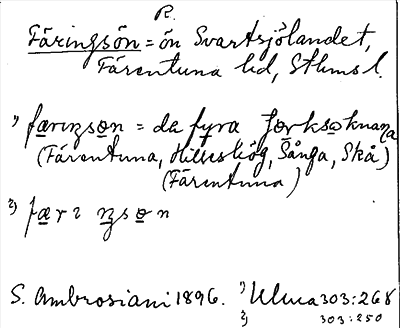 R.
Färingsön = ön Svartsjölandet,
Färentuna hd, Sthms l.
1) færıŋsøn = de fyra Færksoknana
(Färentuna, Hilleshög, Sånga, Skå)
(Färentuna)
2) færı ŋsøn
S. Ambrosiani 1896. 1) Ulma 303:268
2) 303:250